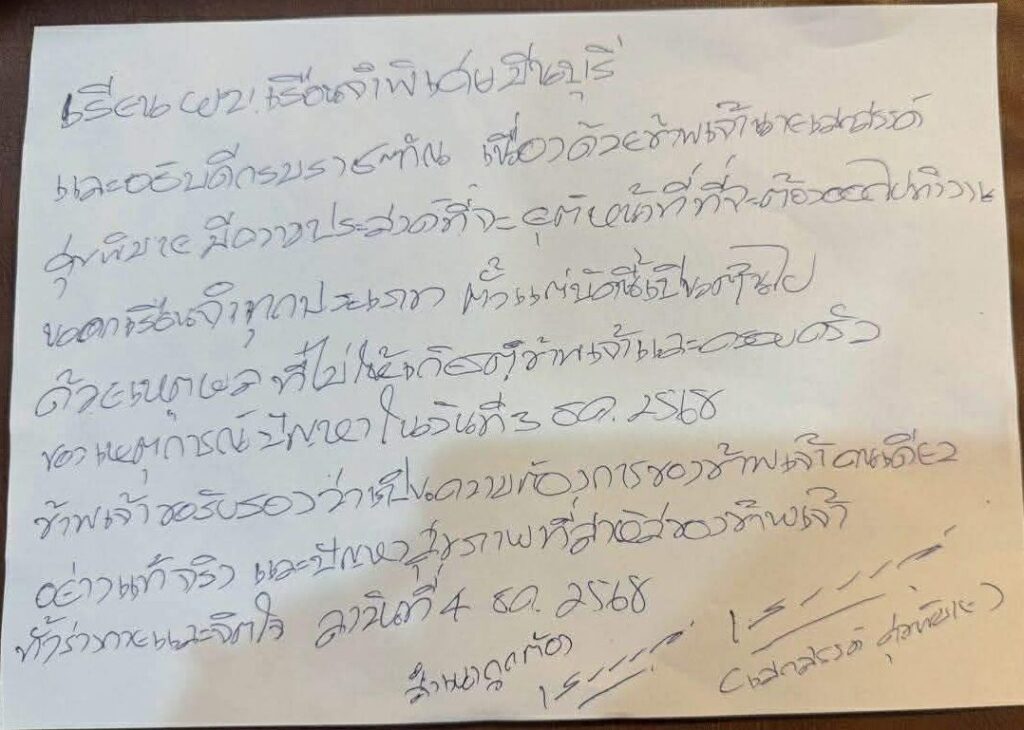 เรียน ผบ.เรือนจำพิเศษมีนบุรี
และอธิบดีกรมราชทัณ เนื่องด้วยข้าพเจ้านายเสกสรรค์
ศุขพิมาย มีความประสงค์ที่จะยุติหน้าที่ที่จะต้องออกไปทำงาน
นอกเรือนจำทุกประเภท ตั้งแต่บัดนี้เป็นต้นไป
ด้วยเหตุผล ที่ไม่ให้เกียรติข้าพเจ้าและครอบครัว
ของเหตุการณ์ปัญหาในวันที่ 3 ธค. 2568
ข้าพเจ้าขอรับรองว่าเป็นความต้องการของข้าพเจ้าคนเดียว
อย่างแท้จริง และปัญหาสุขภาพที่สาหัสของข้าพเจ้า
ทั้งร่างกายและจิตใจ ลาวันที่ 4 ธค. 2568
สำเนาถูกต้อง
(เสกสรรค์ ศุขพิมาย)